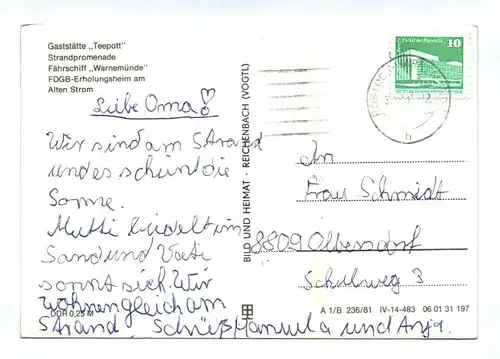 Gaststätte „Teepott"
Strandpromenade
Fährschiff „Warnemünde"
FDGB-Erholungsheim am
Alten Strom
Liebe Oma!
Wir sind am Strand
und es scheint die
Sonne.
Mutti buddelt im
Sand und Vati
sonnt sich. Wir
wohnen gleich am
Strand, Manuela und Anja.
DDR 0,25 M
BILD UND HEIMAT · REICHENBACH (VOGTL)
10
An
Frau Schmidt
8809 Olbersdorf
Schulweg 3
A 1/B 236/81 IV-14-483 06 01 31 197